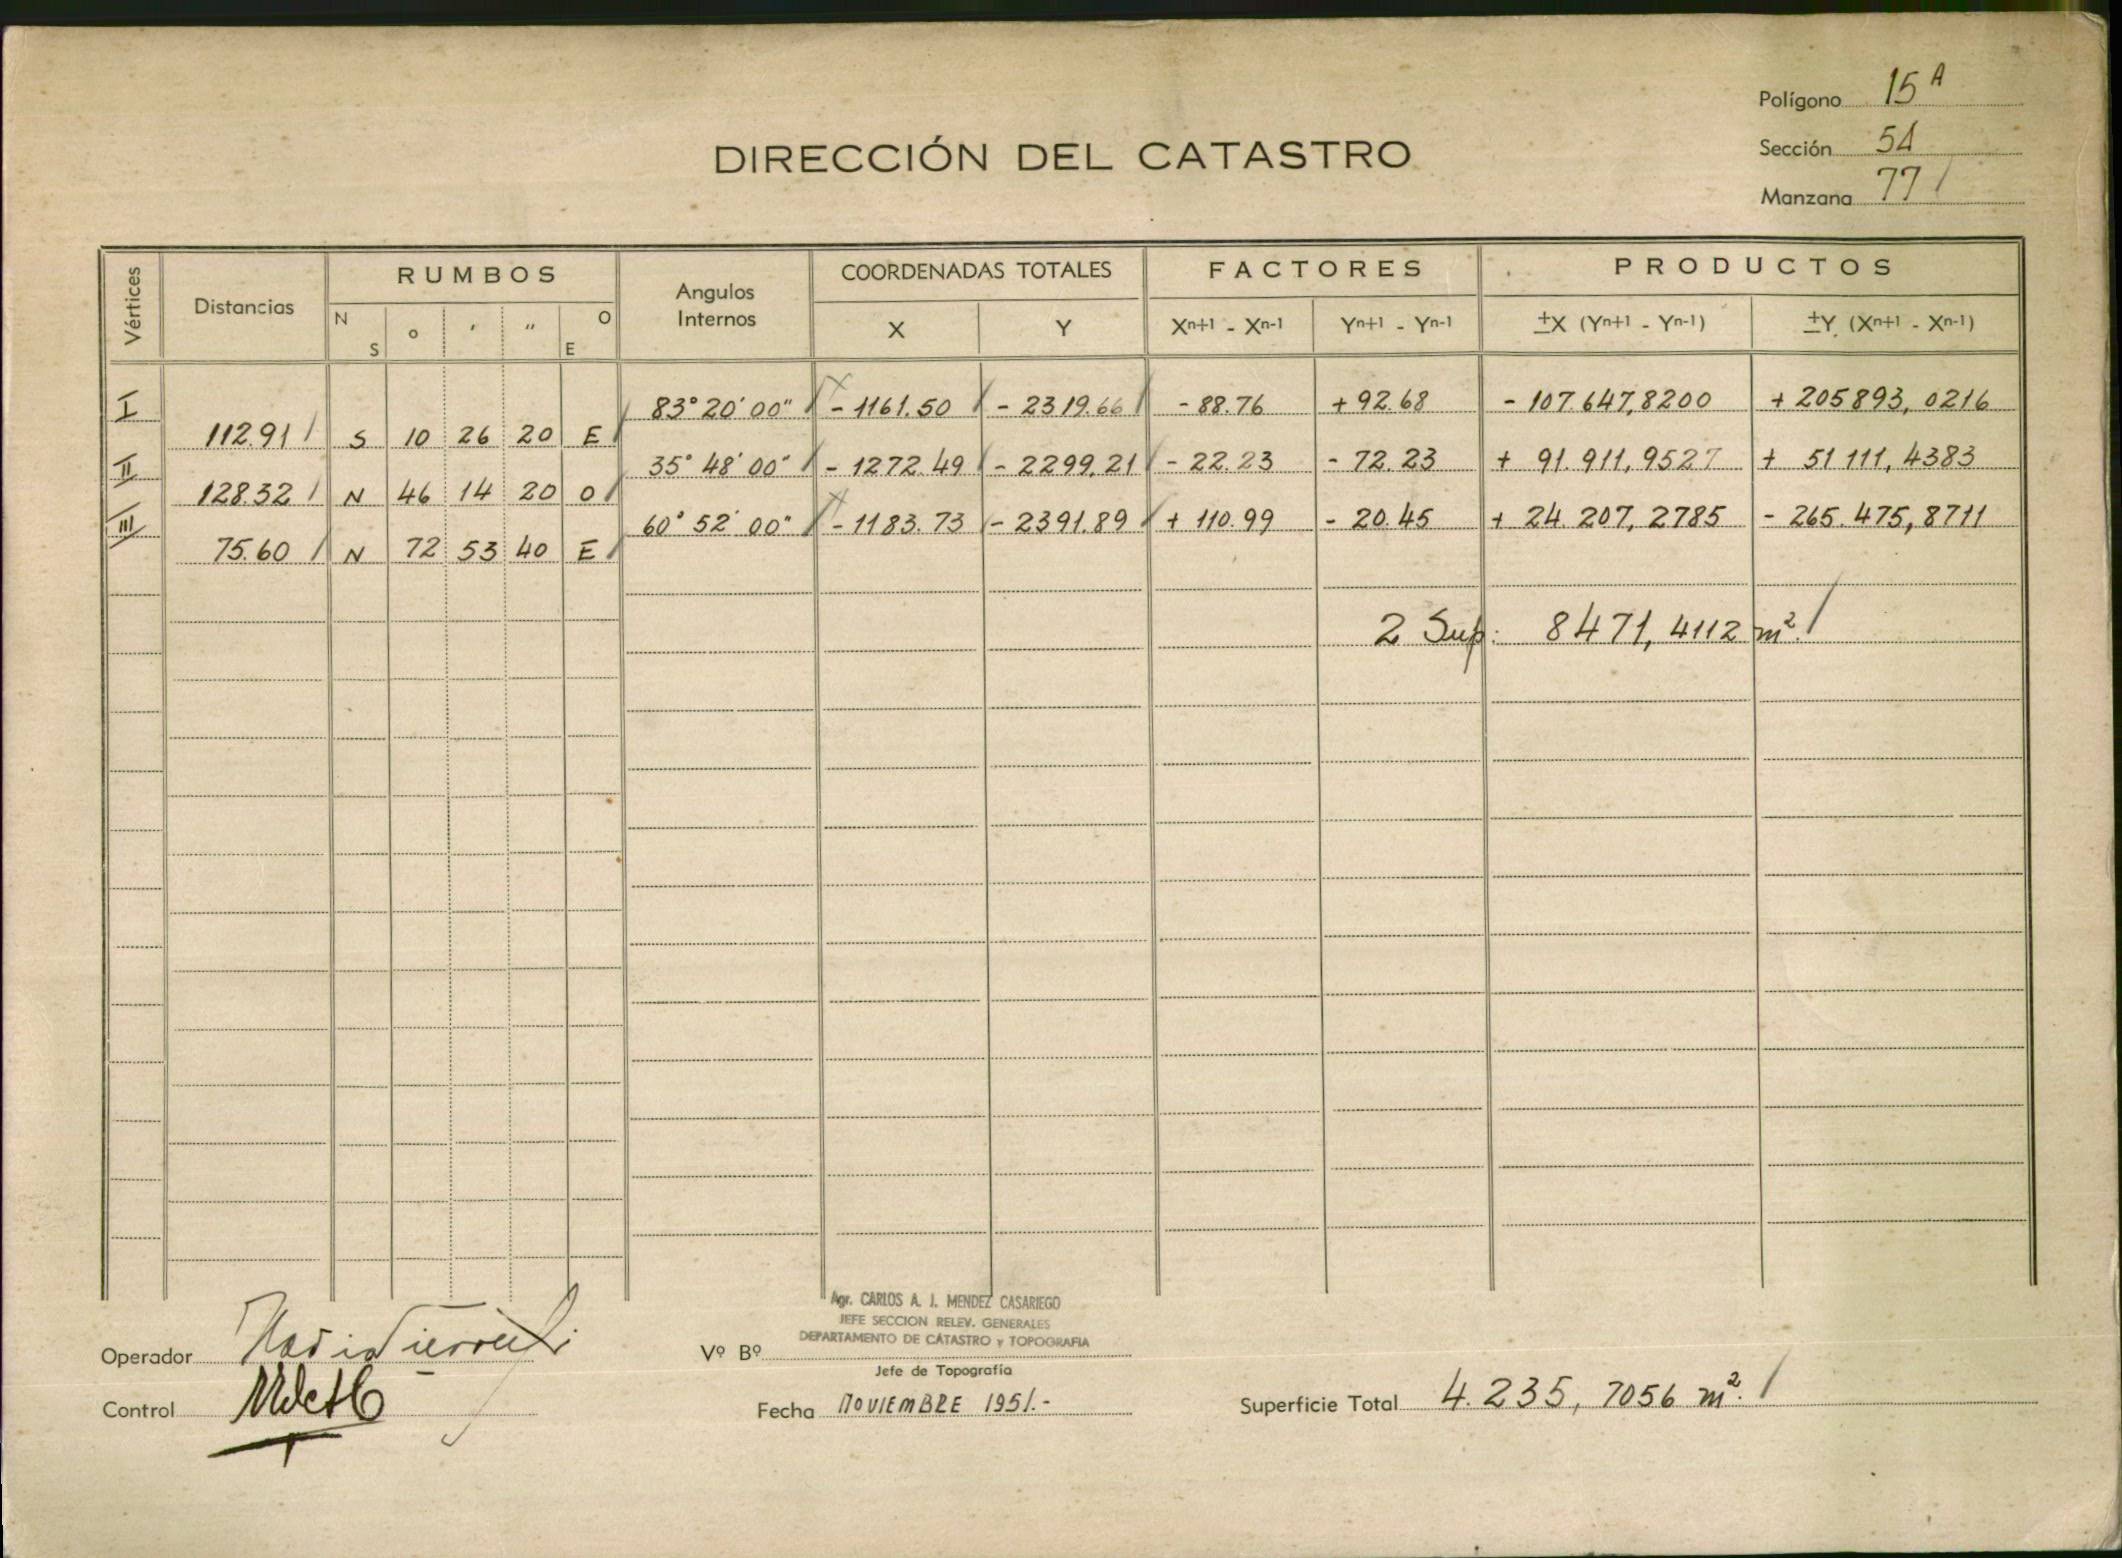 Polígono 15 A
Sección 54
Manzana 77
DIRECCIÓN DEL CATASTRO
Vértices Distancias RUMBOS Angulos Internos COORDENADAS TOTALES FACTORES PRODUCTOS
N S ° ' " O E X Y Xn+1 - Xn-1 Yn+1 - Yn-1 ±X (Yn+1 - Yn-1) ±Y (Xn+1 - Xn-1)
I 83° 20' 00" - 1161.50 - 2319.66 - 88.76 + 92.68 - 107.647,8200 + 205893,0216
112.91 S 10 26 20 E
II 35° 48' 00" - 1272.49 - 2299,21 - 22.23 - 72.23 + 91.911,9527 + 51 111,4383
128.32 N 46 14 20 O
III 60° 52' 00" - 1183.73 - 2391.89 + 110.99 - 20.45 + 24.207,2785 - 265.475,8711
75.60 N 72 53 40 E
2 Sup: 8471,4112 m².
Agr. CARLOS A. J. MENDEZ CASARIEGO
JEFE SECCION RELEV. GENERALES
DEPARTAMENTO DE CATASTRO y TOPOGRAFIA
Operador
Vº Bº
Jefe de Topografía
Control
Fecha NOVIEMBRE 1951.-
Superficie Total 4.235,7056 m².